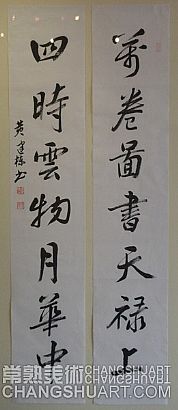 萬卷圖書天禄上
四時雲物月華中
黄建栋书
常熟美術
CHANGSHUART
CHANGSHUART.COM